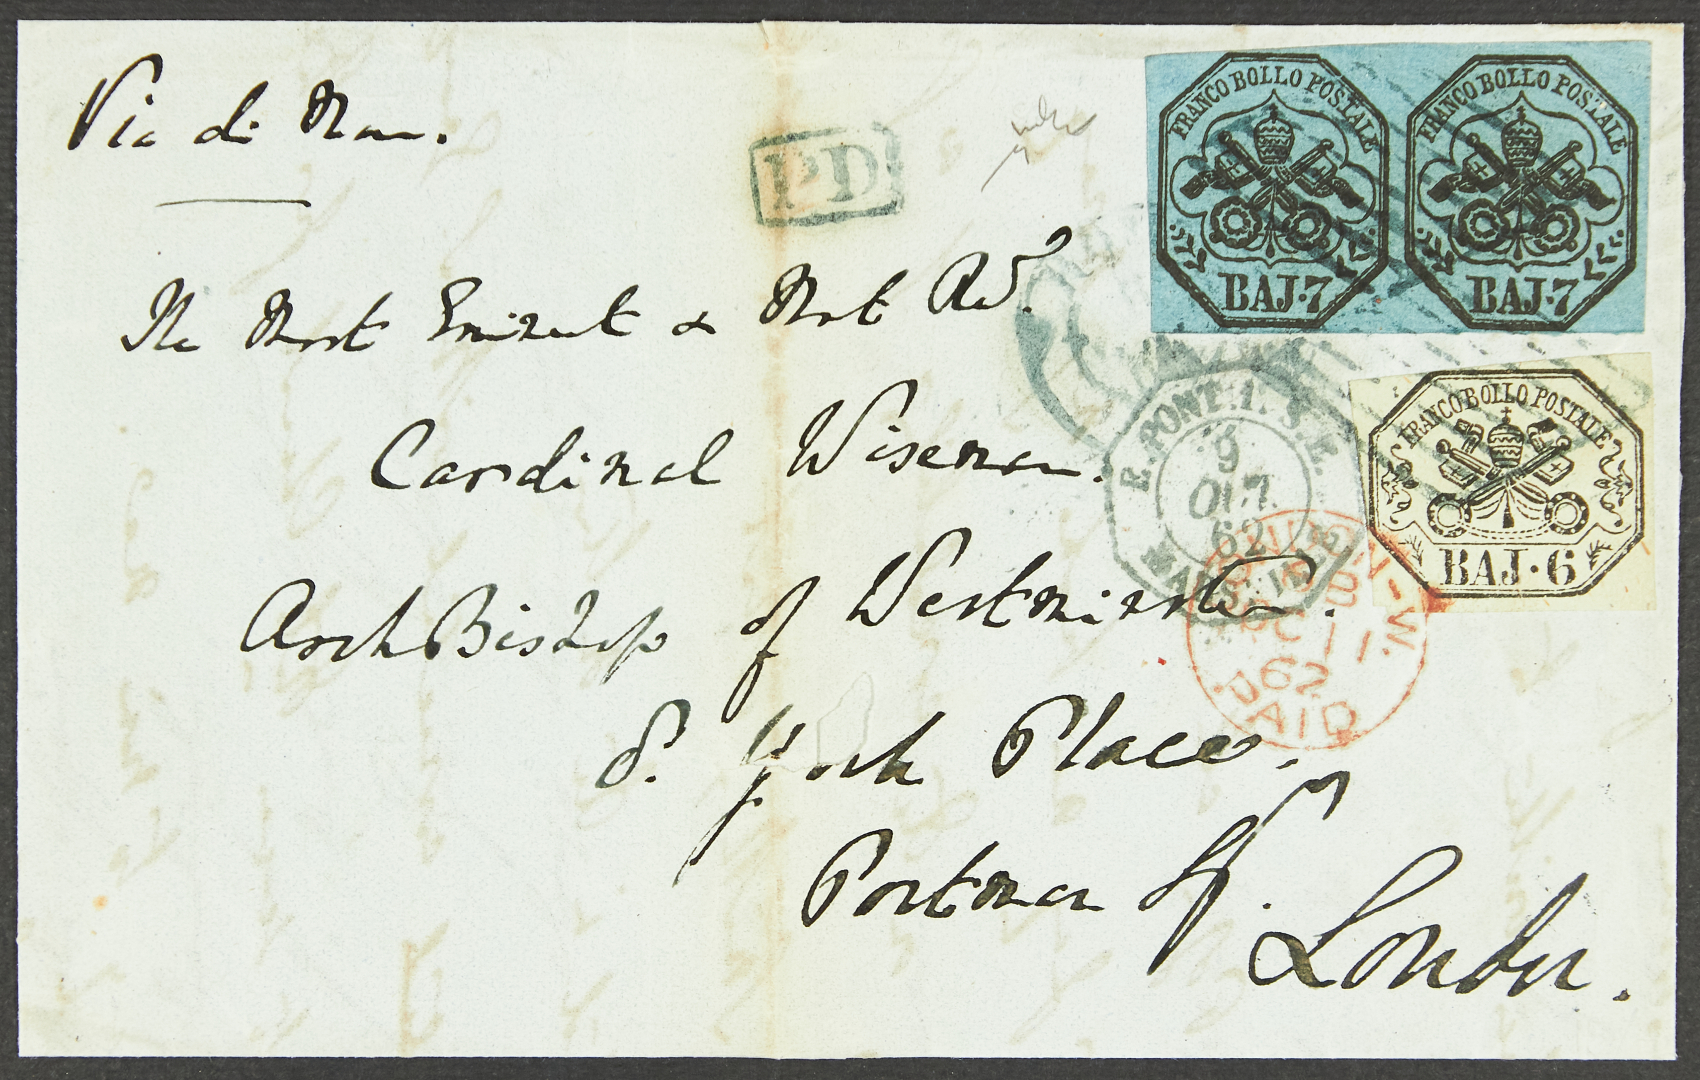 Via di Mare.
PD
FRANCO BOLLO POSTALE
BAJ·7
FRANCO BOLLO POSTALE
BAJ·7
FRANCO BOLLO POSTALE
BAJ·6
The Most Eminent & Most Revd.
Cardinal Wiseman.
E. PONT.
9
OCT.
62
LONDON-W.
OC 11
62
PAID
ArchBishop of Westminster.
8. York Place.
Portman Sq.
London.